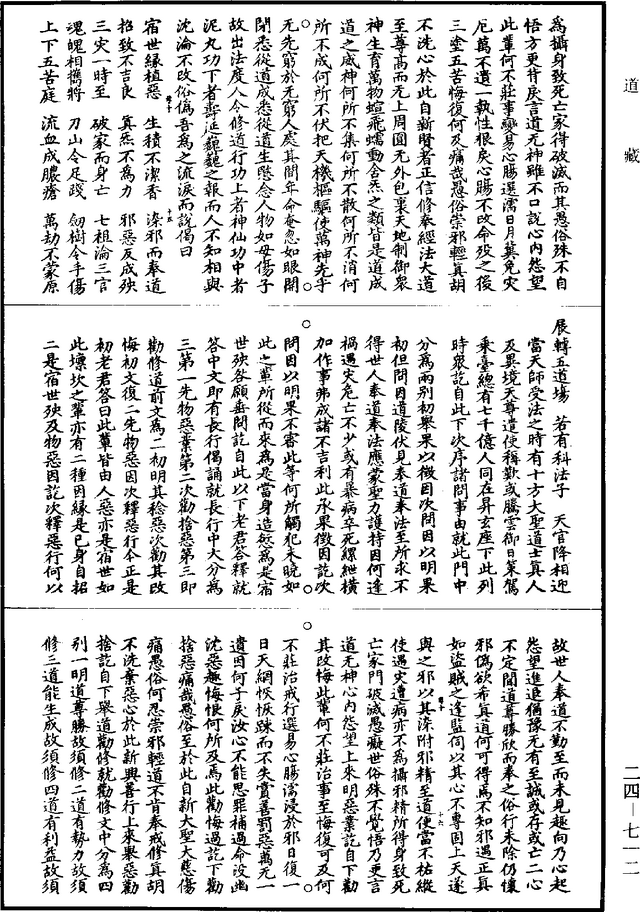 為攝身致死亡家得破滅而其愚俗殊不自
悟方更背戾言道无神雖不口說心內怨望
此輩何不莊事變易心腸選濡日月冀免灾
厄萬不遺一執性很戾心腸不改命殁之後
三塗五苦悔復何及痛哉愚俗崇邪輕真胡
不洗心於此自新賢者正信修奉經法大道
至尊高而无上周圓无外包裹天地制御衆
神生育萬物蜎飛蠕動含炁之類皆是道成
道之威神何所不集何所不散何所不消何
所不成何所不伏把天機樞驅使萬神先乎
无先窮於无窮人處其間年命奄忽如眼開
閉悉從道成悉從道生愍念人物如母傷子
故出法度人令修道行功上者神仙功中者
泥丸功下者壽延巍巍之報而人不知相與
沈淪不改俗偽吾為之流淚而說偈曰
宿世緣植惡　生積不潔香　染邪而奉道
招致不吉良　真炁不為力　邪惡反成殃
三灾一時至　破家而身亡　七祖淪三官
魂魄相攜將　刀山令足踐　劒樹令手傷
上下五苦庭　流血成膿瘡　萬劫不蒙原
展轉五道場　若有科法子　天官降相迎
當天師受法之時有十方大聖道士真人
及異境天尊遣使稱歎或騰雲御日策駕
乘臺總有七千億人同在昇玄座下此列
時衆訖自此下次序諸問事由就此門中
分為兩別初舉果以徵因次問因以明果
初但問因道陵伏見奉道奉法至所求不
得世人奉道奉法應蒙聖力護持因何逢
禍遇灾危亡不少或有暴病卒死縲紲橫
加作事弗成諸不吉利此承果徵因訖次
問因以明果不審此等何所觸犯未曉如
此之輩所從而來為是當身造愆為是宿
世殃咎願垂問訖自此以下老君答釋就
答中文即有長行偈誦就長行中大分為
三第一先物惡業第二次勸捨惡第三即
勸修道前文為二初明其稔惡次勸其改
悔初文復二先物惡因次釋惡行今正是
初老君答曰此輩皆由人惡亦是宿世如
此壈坎之輩亦有二種因緣是已身自招
二是宿世殃及物惡因訖次釋惡行何以
故世人奉道不勤至而未見趣向乃心起
怨望進退猶豫无有至誠或存或亡二心
不定聞道尊勝欣而奉之俗行未除仍懷
邪偽欲希真道何可得焉不知邪遇正真
如盜賊之逢監伺以其心不專固上天遂
與之邪以其染附邪精至道便當不祐縱
使遇灾遭病亦不為攝邪精所得身致死
亡家門破滅愚癡世俗殊不覺悟乃更言
道无神心內怨望上來明惡業訖自下勸
其改悔此輩何不莊治事至悔復可及何
不莊治戒行選易心腸濡浸於邪日復一
日天網恢恢踈而不失賞善罰惡萬无一
遺因何子戾汝心不能思罪補過命没幽
沈惡趣悔恨何所及焉此勸悔過訖下勸
捨惡痛哉愚俗至於此自新大聖大悲傷
痛愚俗何忍崇邪輕道不肯奉戒修真胡
不洗棄惡心於此新興善行上來舉惡勸
捨訖自下舉道勸修就勸修文中分為四
別一明道尊勝故須修二道有勢力故須
修三道能生成故須修四道有利益故須
道　藏
二四—七一二